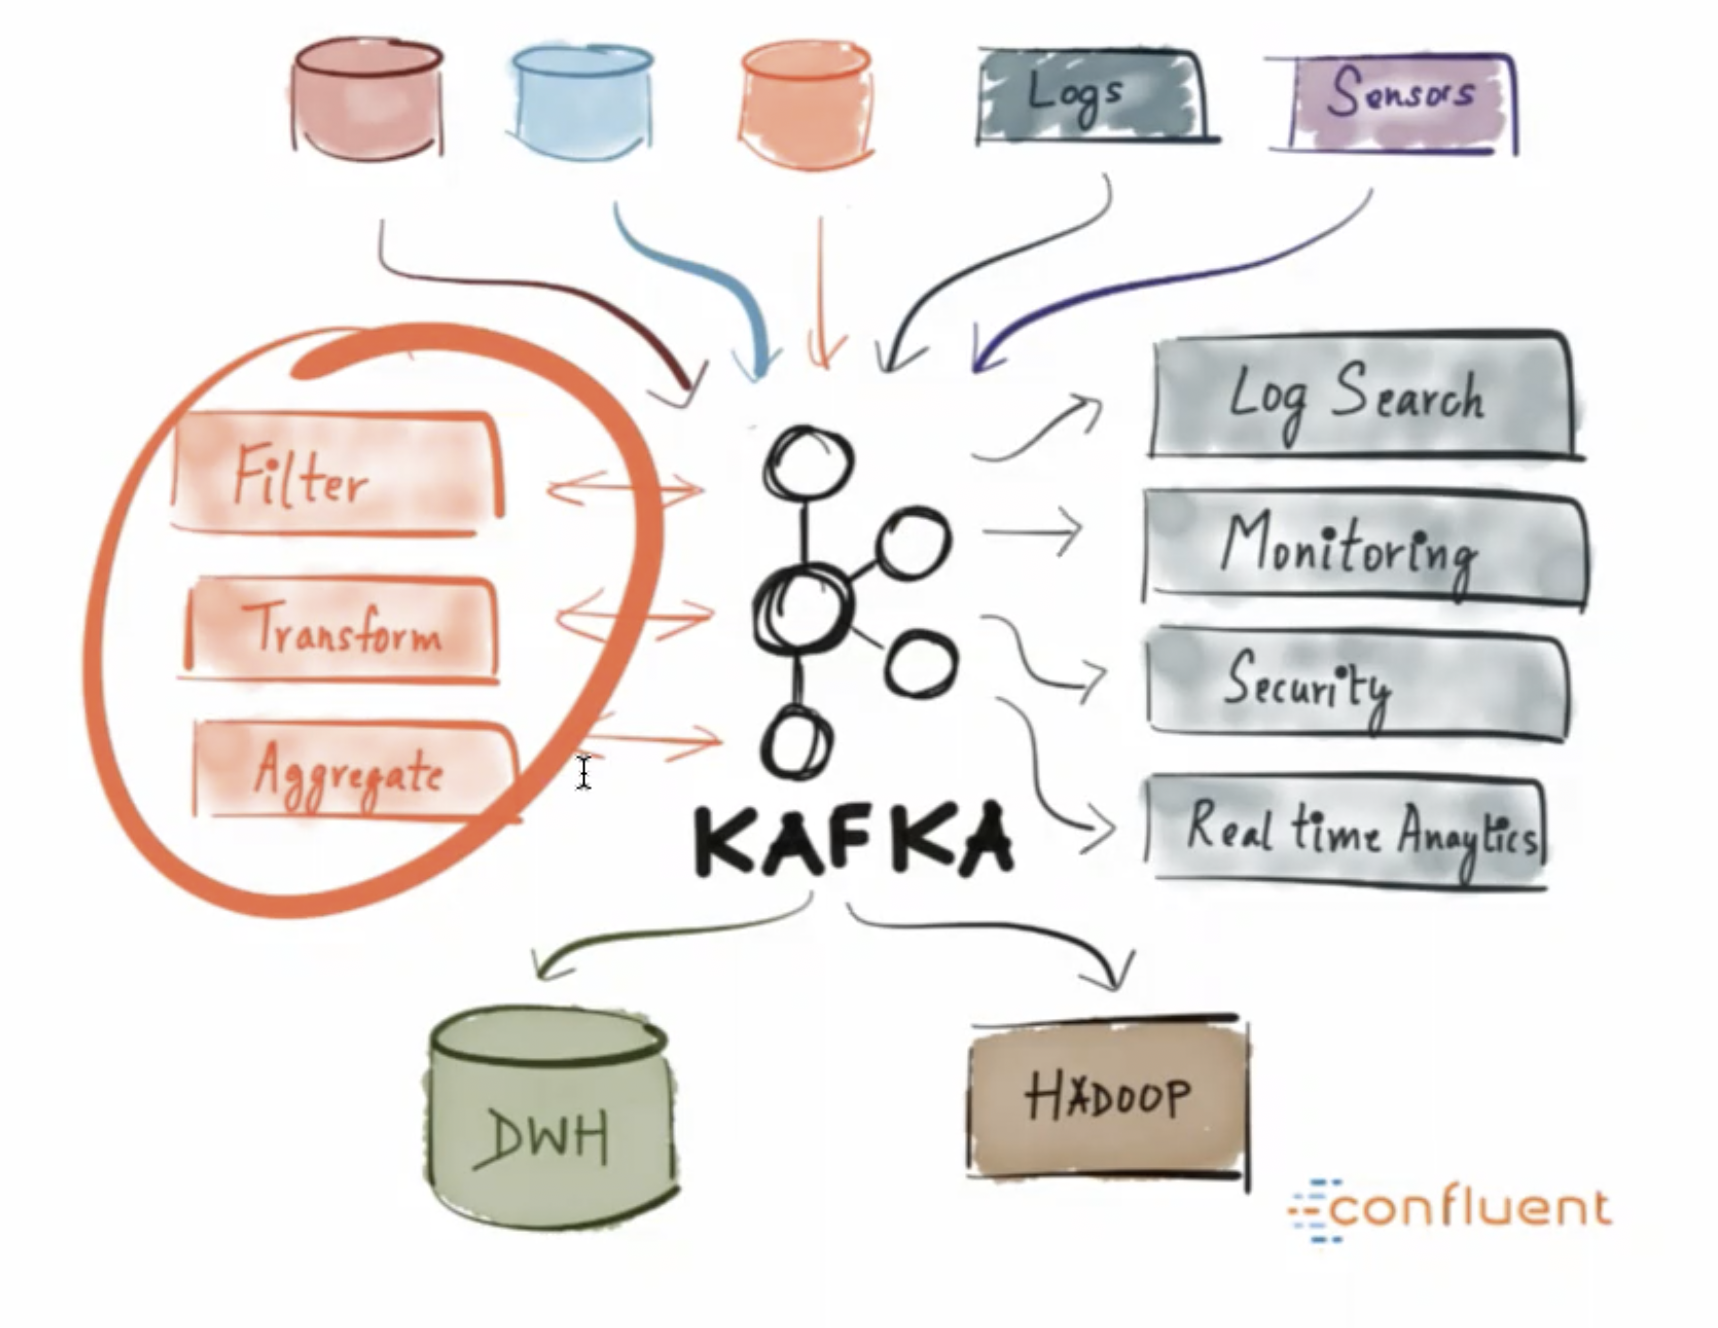 Logs
Sensors
Filter
Transform
Aggregate
KAFKA
Log Search
Monitoring
Security
Real time Anaytics
DWH
HADOOP
confluent